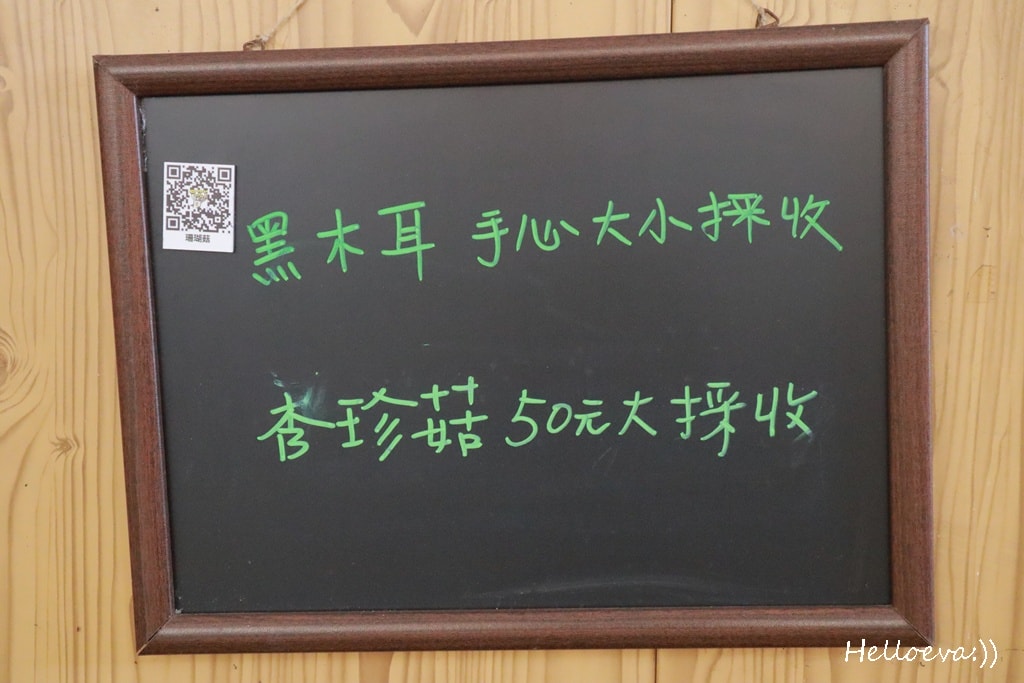 珊瑚菇
黑木耳 手心大小採收
杏珍菇 50元大採收
Helloeva:))